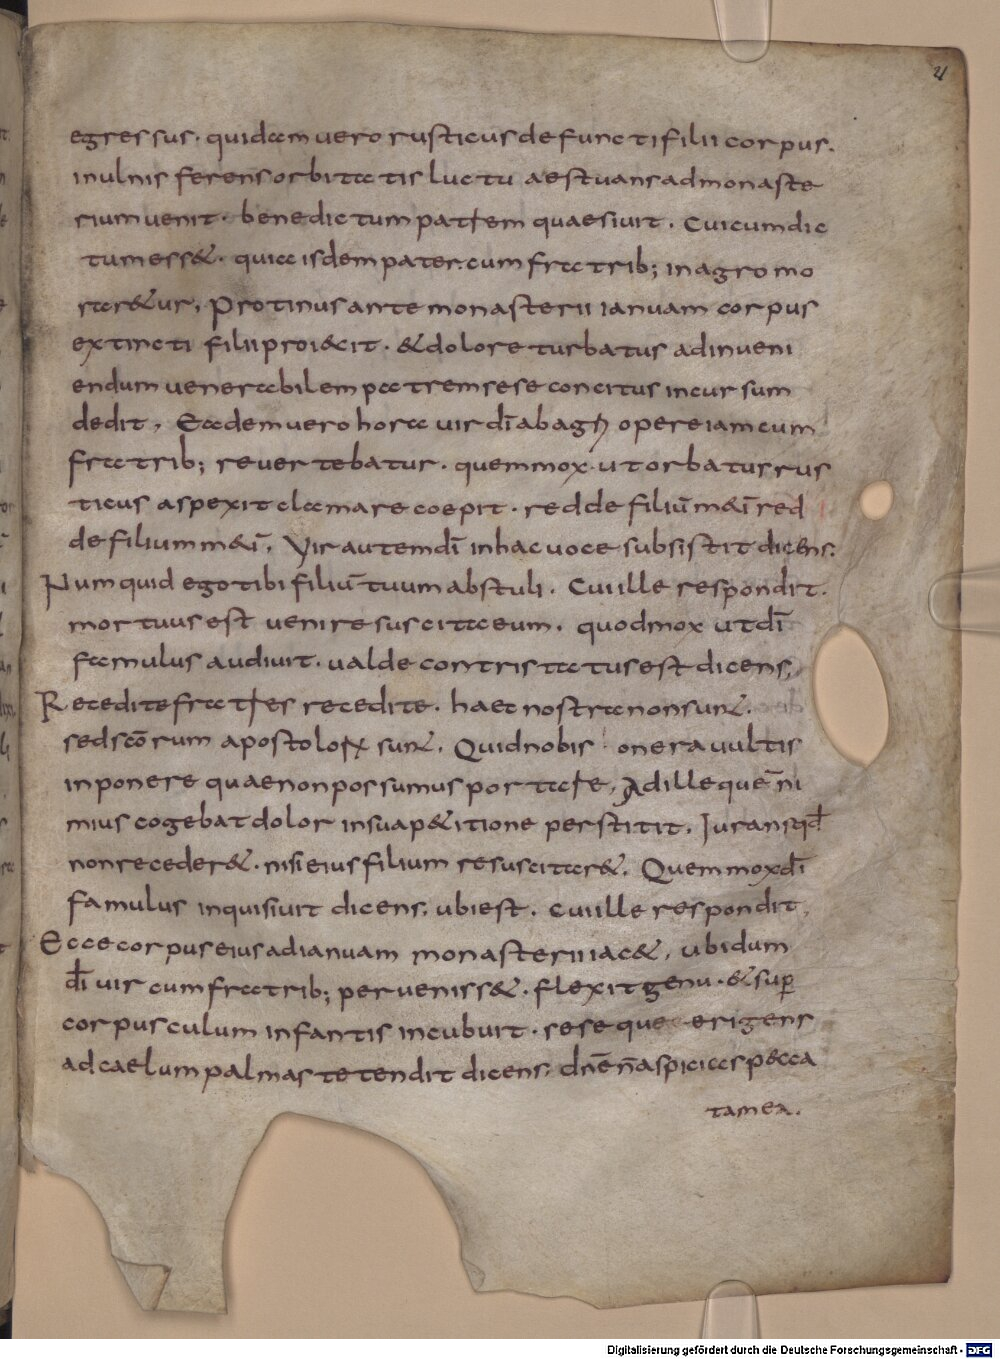 21
egressus. quidam uero rusticus defuncti filii corpus.
inulnis ferens orbitatis luctu aestuans admonaste
rium uenit. benedictum patrem quaesiuit. Cui cum dic
tum ess&. quia isdem pater cum fratrib; in agro mo
rar&ur, Protinus ante monasterii ianuam corpus
extincti filii proi&cit. & dolore turbatus ad inueni
endum uenerabilem patrem sese concitus in cursum
dedit, Eadem uero hora uir dī ab agꝝ opere iam cum
fratrib; reuertebatur. quem mox ut orbatus rus
ticus aspexit clamare coepit. redde filiū m&ī red
de filium m&ī, Vir autem dī in hac uoce subsistit dicens.
Numquid ego tibi filiū tuum abstuli. Cui ille respondit.
mortuus est ueni resuscita eum. quod mox ut dī
famulus audiuit. ualde contristatus est dicens,
Recedite fratres recedite. haec nostra non sun&.
sed scōrum apostoloꝝ sun&. Quid nobis onera uultis
inponere quae non possumus portare, Ad ille quē ni
mius cogebat dolor in sua p&itione perstitit. Iurans qd̄
non receder&. nisi eius filium resuscitar&. Quem mox dī
famulus inquisiuit dicens, ubi est. Cui ille respondit,
Ecce corpus eius ad ianuam monasterii iac&, ubi dum
dī uir cum fratrib; perueniss&. flexit genu. & sup̄
corpusculum infantis incubuit. seseque erigens
ad caelum palmas tetendit dicens, dn̄e n̄ aspicias p&cca
ta mea.
Digitalisierung gefördert durch die Deutsche Forschungsgemeinschaft - DFG